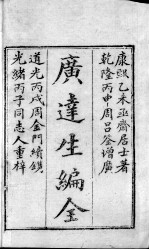 康熙乙未亟齋居士著
乾隆丙申周呂峚增廣
廣達生編全
道光丙戌周金門續鐫
光緒丙子同志人重梓